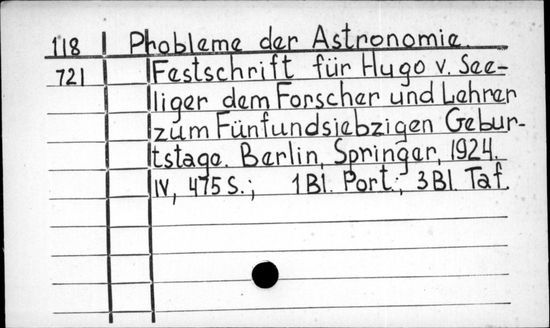 118 Probleme der Astronomie.
721 Festschrift für Hugo v. See-
liger dem Forscher und Lehrer
zum Fünfundsiebzigen Gebur-
tstage. Berlin, Springer, 1924.
IV, 475 S.; 1 Bl. Port.; 3 Bl. Taf.